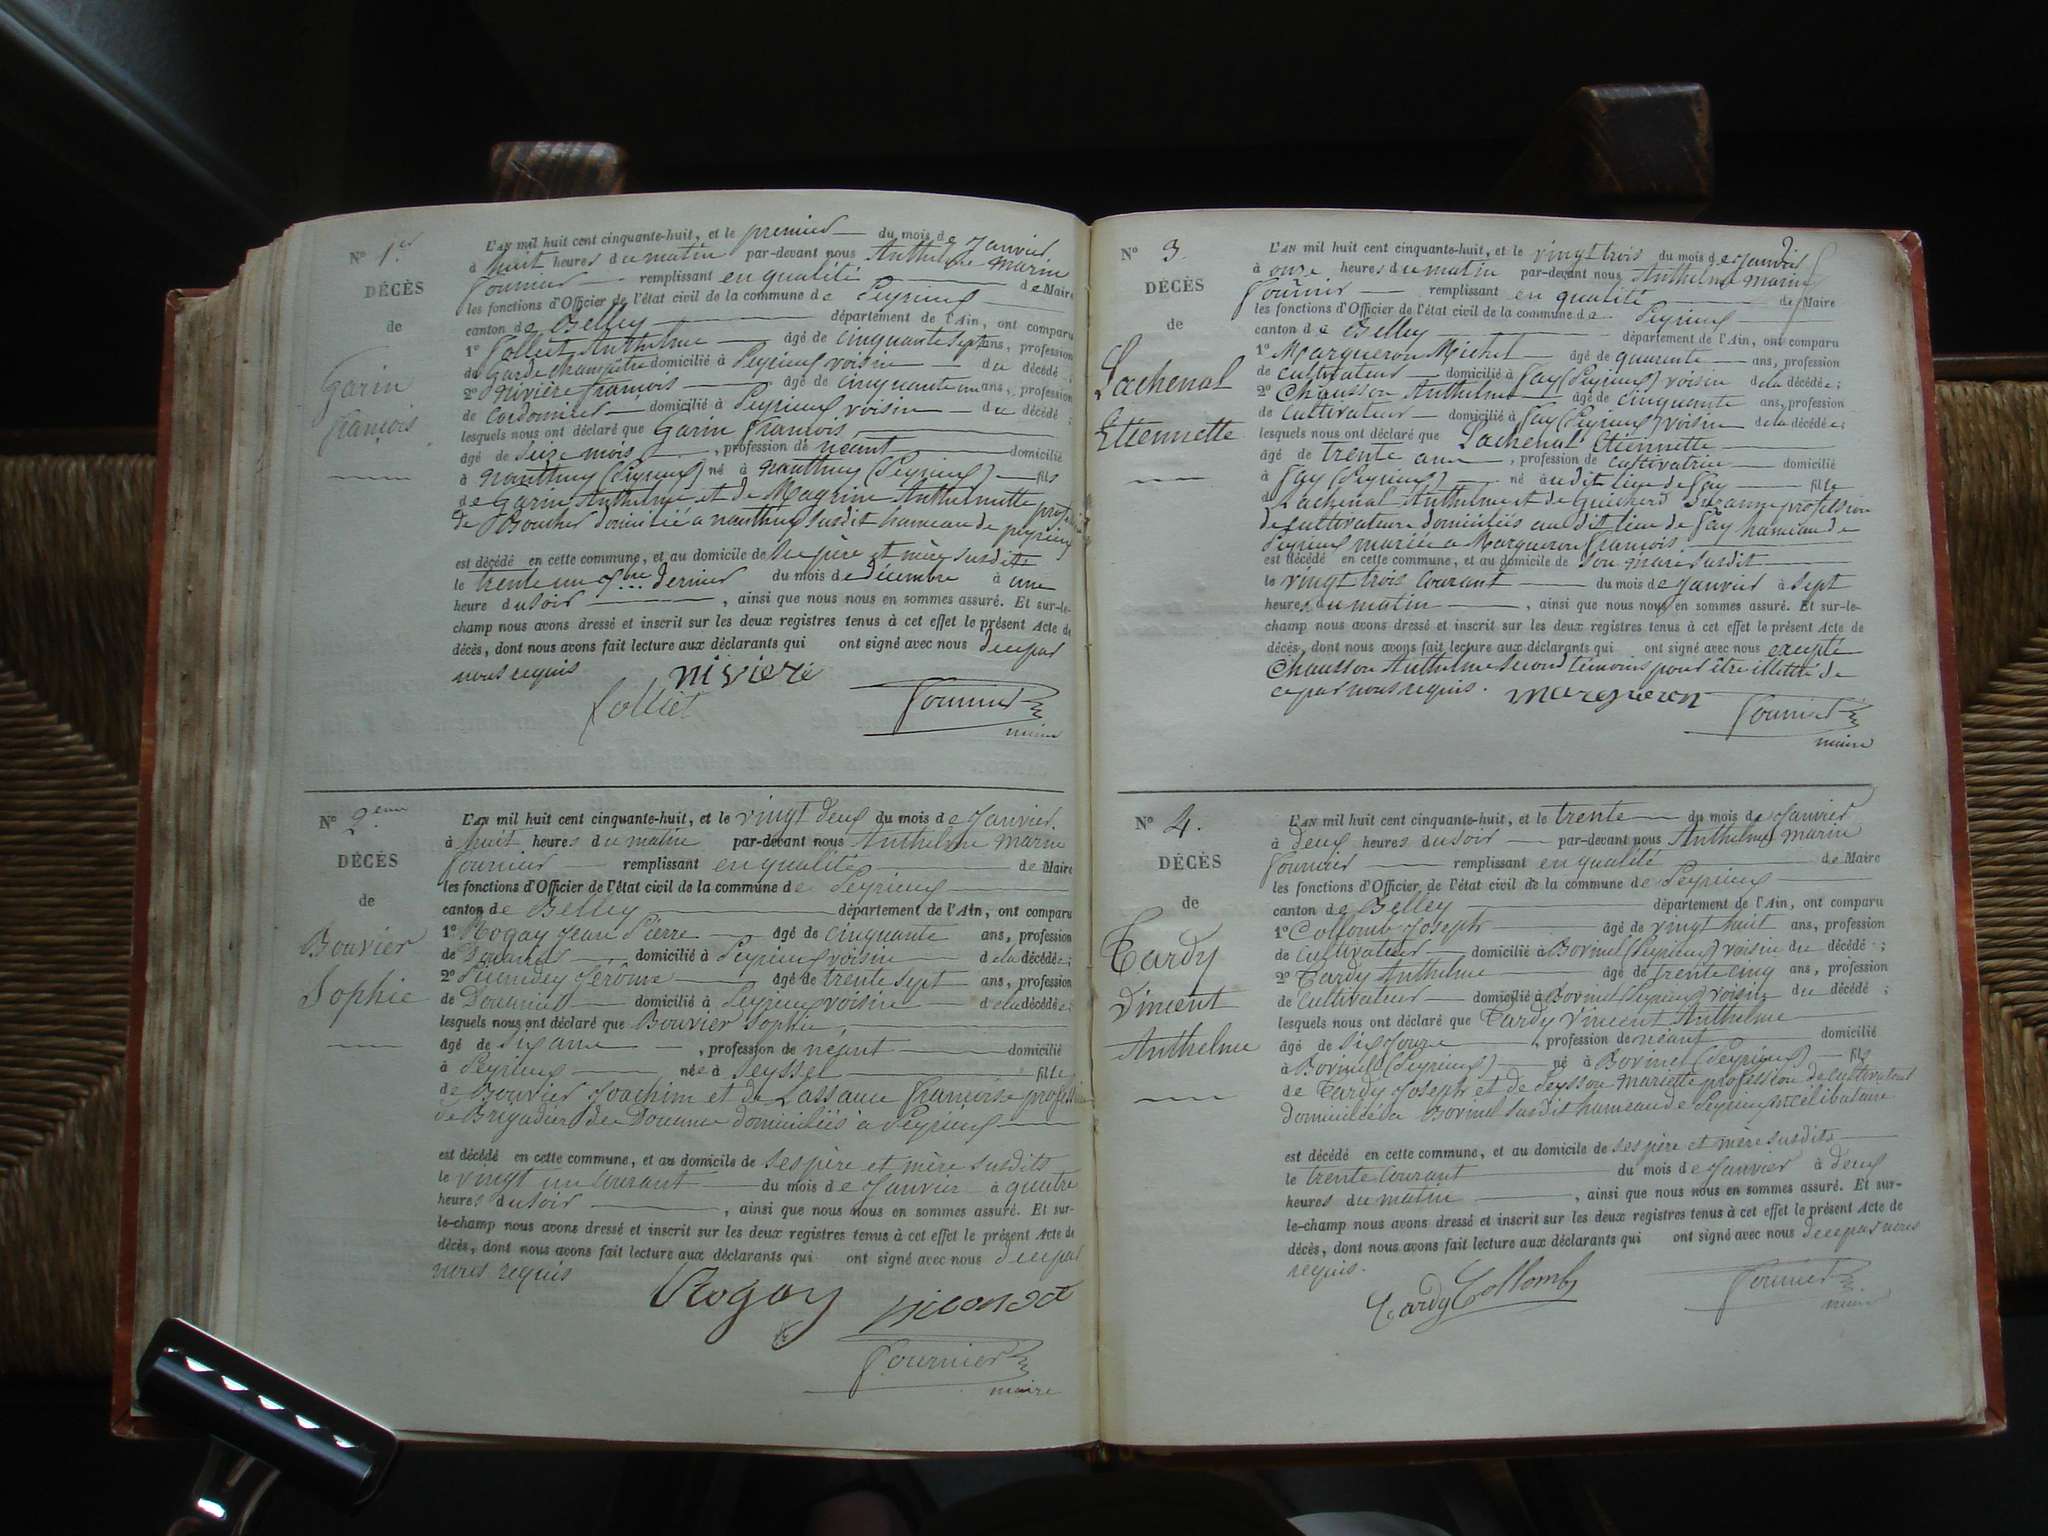 N° 1er
DÉCÈS
de
Garin
François
L'AN mil huit cent cinquante-huit, et le premier du mois de Janvier
à huit heures du matin par-devant nous Anthelme Marin
Fournier remplissant en qualité de Maire
les fonctions d'Officier de l'état civil de la commune de Peyrieux
canton de Belley département de l'Ain, ont comparu
1° Folliet Anthelme âgé de cinquante sept ans, profession
de Garde champêtre domicilié à Peyrieux voisin du décédé;
2° Nivière françois âgé de cinquante un ans, profession
de Cordonnier domicilié à Peyrieux voisin du décédé;
lesquels nous ont déclaré que Garin françois
âgé de seize mois, profession de néant domicilié
à nanthuy (Peyrieux) né à nanthuy (Peyrieux) fils
de Garin Anthelme et de Magnin Anthelmette profession
de domicilié à nanthuy susdit hameau de peyrieux
est décédé en cette commune, et au domicile de ses père et mère susdits
le trente un Xbre dernier du mois de décembre à une
heure du soir, ainsi que nous nous en sommes assuré. Et sur-le-
champ nous avons dressé et inscrit sur les deux registres tenus à cet effet le présent Acte de
décès, dont nous avons fait lecture aux déclarants qui ont signé avec nous de ce par
nous requis
nivière
folliet
Fournier
maire
N° 2eme
DÉCÈS
de
Bouvier
Sophie
L'AN mil huit cent cinquante-huit, et le vingt deux du mois de Janvier
à huit heures du matin par-devant nous Anthelme Marin
Fournier remplissant en qualité de Maire
les fonctions d'Officier de l'état civil de la commune de Peyrieux
canton de Belley département de l'Ain, ont comparu
1° Rogay Jean Pierre âgé de cinquante ans, profession
de Douanier domicilié à Peyrieux voisin de la décédée;
2° Jérôme âgé de trente sept ans, profession
de Douanier domicilié à Peyrieux voisin de la décédée;
lesquels nous ont déclaré que Bouvier Sophie,
âgé de six ans, profession de néant domicilié
à Peyrieux née à Seyssel fille
de Bouvier Joachim et de Lassauce francoise profession
de Brigadier des Douanes domiciliés à Peyrieux
est décédé en cette commune, et au domicile de ses père et mère susdits
le vingt un courant du mois de Janvier à quatre
heures du soir, ainsi que nous nous en sommes assuré. Et sur-
le-champ nous avons dressé et inscrit sur les deux registres tenus à cet effet le présent Acte de
décès, dont nous avons fait lecture aux déclarants qui ont signé avec nous de ce par
nous requis
Rogay
Fournier
maire
N° 3
DÉCÈS
de
Lachenal
Etiennette
L'AN mil huit cent cinquante-huit, et le vingt trois du mois de Janvier
à onze heures du matin par-devant nous Anthelme Marin
Fournier remplissant en qualité de Maire
les fonctions d'Officier de l'état civil de la commune de Peyrieux
canton de Belley département de l'Ain, ont comparu
1° Margueron Michel âgé de quarente ans, profession
de cultivateur domicilié à Fay (Peyrieux) voisin de la décédée;
2° Chausson Anthelme âgé de cinquante ans, profession
de cultivateur domicilié à Fay (Peyrieux) voisin de la décédée;
lesquels nous ont déclaré que Lachenal Etiennette
âgé de trente ans, profession de cultivatrice domicilié
à Fay (Peyrieux) né audit lieu de Fay fille
Lachenal Anthelme et de Guicherd Suzanne profession
de cultivateurs domiciliés au dit lieu de Fay hameau de
Peyrieux mariée a Margueron françois
est décédé en cette commune, et au domicile de son mari susdit
le vingt trois courant du mois de Janvier à sept
heures du matin, ainsi que nous nous en sommes assuré. Et sur-le-
champ nous avons dressé et inscrit sur les deux registres tenus à cet effet le présent Acte de
décès, dont nous avons fait lecture aux déclarants qui ont signé avec nous excepté
Chausson Anthelme second témoins pour être illétré de
ce par nous requis.
margueron
Fournier
maire
N° 4.
DÉCÈS
de
Tardy
Vincent
Anthelme
L'AN mil huit cent cinquante-huit, et le trente du mois de Janvier
à deux heures du soir par-devant nous Anthelme Marin
Fournier remplissant en qualité de Maire
les fonctions d'Officier de l'état civil de la commune de Peyrieux
canton de Belley département de l'Ain, ont comparu
1° Collomb Joseph âgé de vingt huit ans, profession
de cultivateur domicilié à Bovinel (Peyrieux) voisin du décédé;
2° Tardy Anthelme âgé de trente cinq ans, profession
de cultivateur domicilié à Bovinel (Peyrieux) voisin du décédé;
lesquels nous ont déclaré que Tardy Vincent Anthelme
âgé de six jours, profession de néant domicilié
à Bovinel (Peyrieux) né à Bovinel (Peyrieux) fils
de Tardy Joseph et de Peysson Mariette profession de cultivateurs
domiciliés a Bovinel susdit hameau de Peyrieux célibataire
est décédé en cette commune, et au domicile de ses père et mère susdits
le trente courant du mois de Janvier à deux
heures du matin, ainsi que nous nous en sommes assuré. Et sur-
le-champ nous avons dressé et inscrit sur les deux registres tenus à cet effet le présent Acte de
décès, dont nous avons fait lecture aux déclarants qui ont signé avec nous de ce par nous
requis.
Tardy Collomb
Fournier
maire